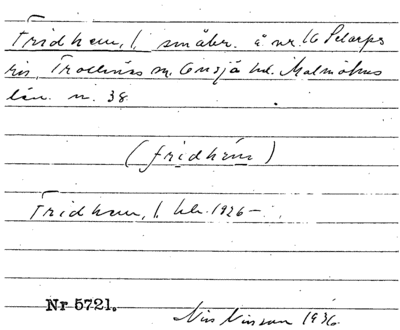 Fridhem, 1. småbr. å nr. 16 Pelarps
Trollenäs sn. Onsjö hd. Malmöhus
län. n. 38
(fridhém)
Fridhem, 1. 1926 –
Nr 5721.
Nils Nilsson 1936.